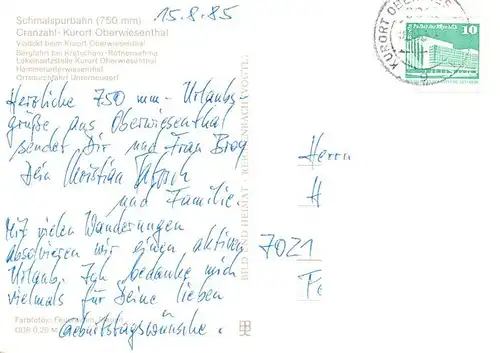 Schmalspurbahn (750 mm)
Cranzahl - Kurort Oberwiesenthal
Viadukt beim Kurort Oberwiesenthal
Bergfahrt bei Kretscham - Rothensehma
Lokeinsatzstelle Kurort Oberwiesenthal
Hammerunterwiesenthal
Ortsdurchfahrt Unterneudorf
15.8.85
KURORT OBERWIES
10
Herzliche 750 mm - Urlaubs-
grüße aus Oberwiesenthal
sendet Dir und Frau
Dein Christian
und Familie.
Mit vielen Wanderungen
absolvieren wir einen aktiven
Urlaub. Ich bedanke mich
vielmals für Deine lieben
Geburtstagswünsche.
BILD UND HEIMAT · REICHENBACH (VOGTL)
Herrn
H
7021
Fe
Farbfoto:
DDR 0,20 M